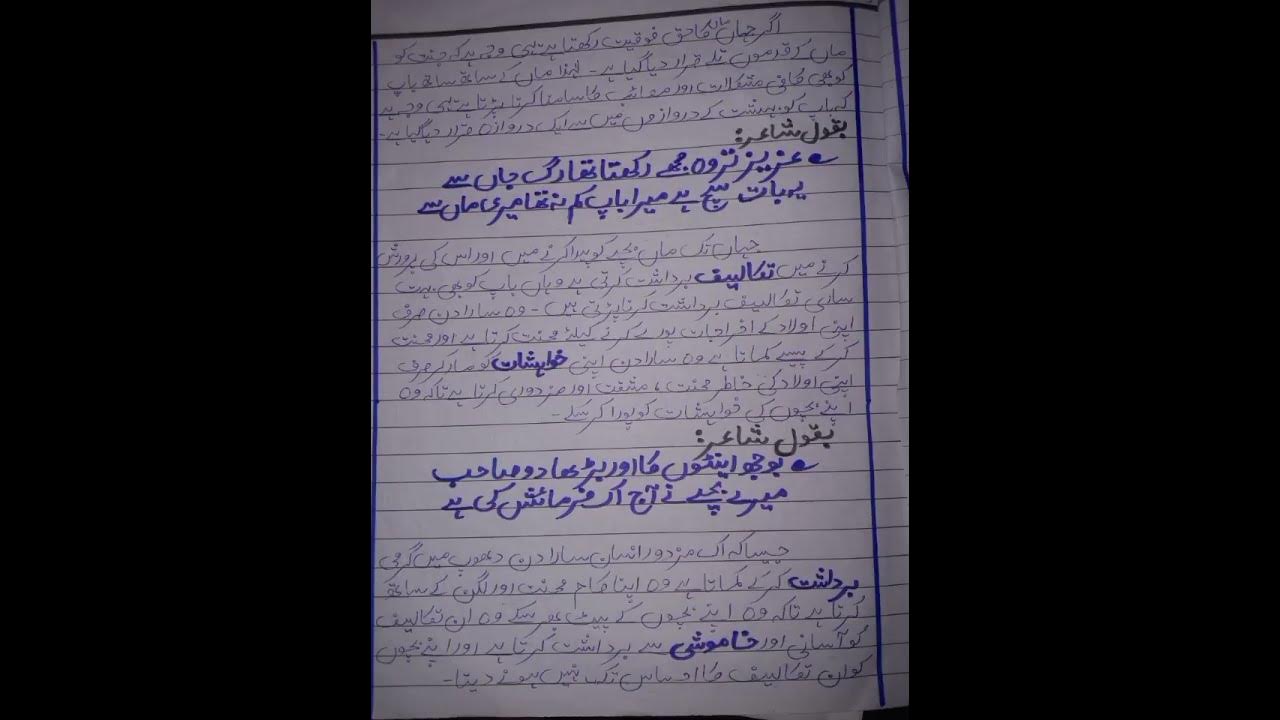 اگر جہاں ماں کا حق فوقیت رکھتا ہے یہی وجہ ہے کہ جنت کو
ماں کے قدموں تلے قرار دیا گیا ہے۔ لہٰذا ماں کے ساتھ ساتھ باپ
کو بھی کافی مشکلات اور مصائب کا سامنا کرنا پڑتا ہے یہی وجہ ہے
کہ باپ کو بہشت کے دروازوں میں سے ایک دروازہ قرار دیا گیا ہے۔
بقول شاعر:
عزیز تر وہ مجھے رکھتا تھا رگ جاں سے
یہ بات سچ ہے میرا باپ کم نہ تھا میری ماں سے
جہاں تک ماں بچے کو پیدا کرنے میں اور اس کی پرورش
کرنے میں تکالیف برداشت کرتی ہے وہاں باپ کو بھی بہت
ساری تکالیف برداشت کرنا پڑتی ہیں۔ وہ سارا دن صرف
اپنی اولاد کے اخراجات پورے کرنے کیلئے محنت کرتا ہے اور محنت
کر کے پیسے کماتا ہے وہ سارا دن اپنی خواہشات کو مار کر صرف
اپنی اولاد کی خاطر محنت، مشقت اور مزدوری کرتا ہے تاکہ وہ
اپنے بچوں کی خواہشات کو پورا کر سکے۔
بقول شاعر:
بوجھ اینٹوں کا اور بڑھا دو صاحب
میرے بچے نے آج اک فرمائش کی ہے
جیسا کہ اک مزدور انسان سارا دن دھوپ میں گرمی
برداشت کر کے کماتا ہے وہ اپنا کام محنت اور لگن کے ساتھ
کرتا ہے تاکہ وہ اپنے بچوں کے پیٹ بھر سکے وہ ان تکالیف
کو آسانی اور خاموشی سے برداشت کرتا ہے اور اپنے بچوں
کو ان تکالیف کا احساس تک نہیں ہونے دیتا۔